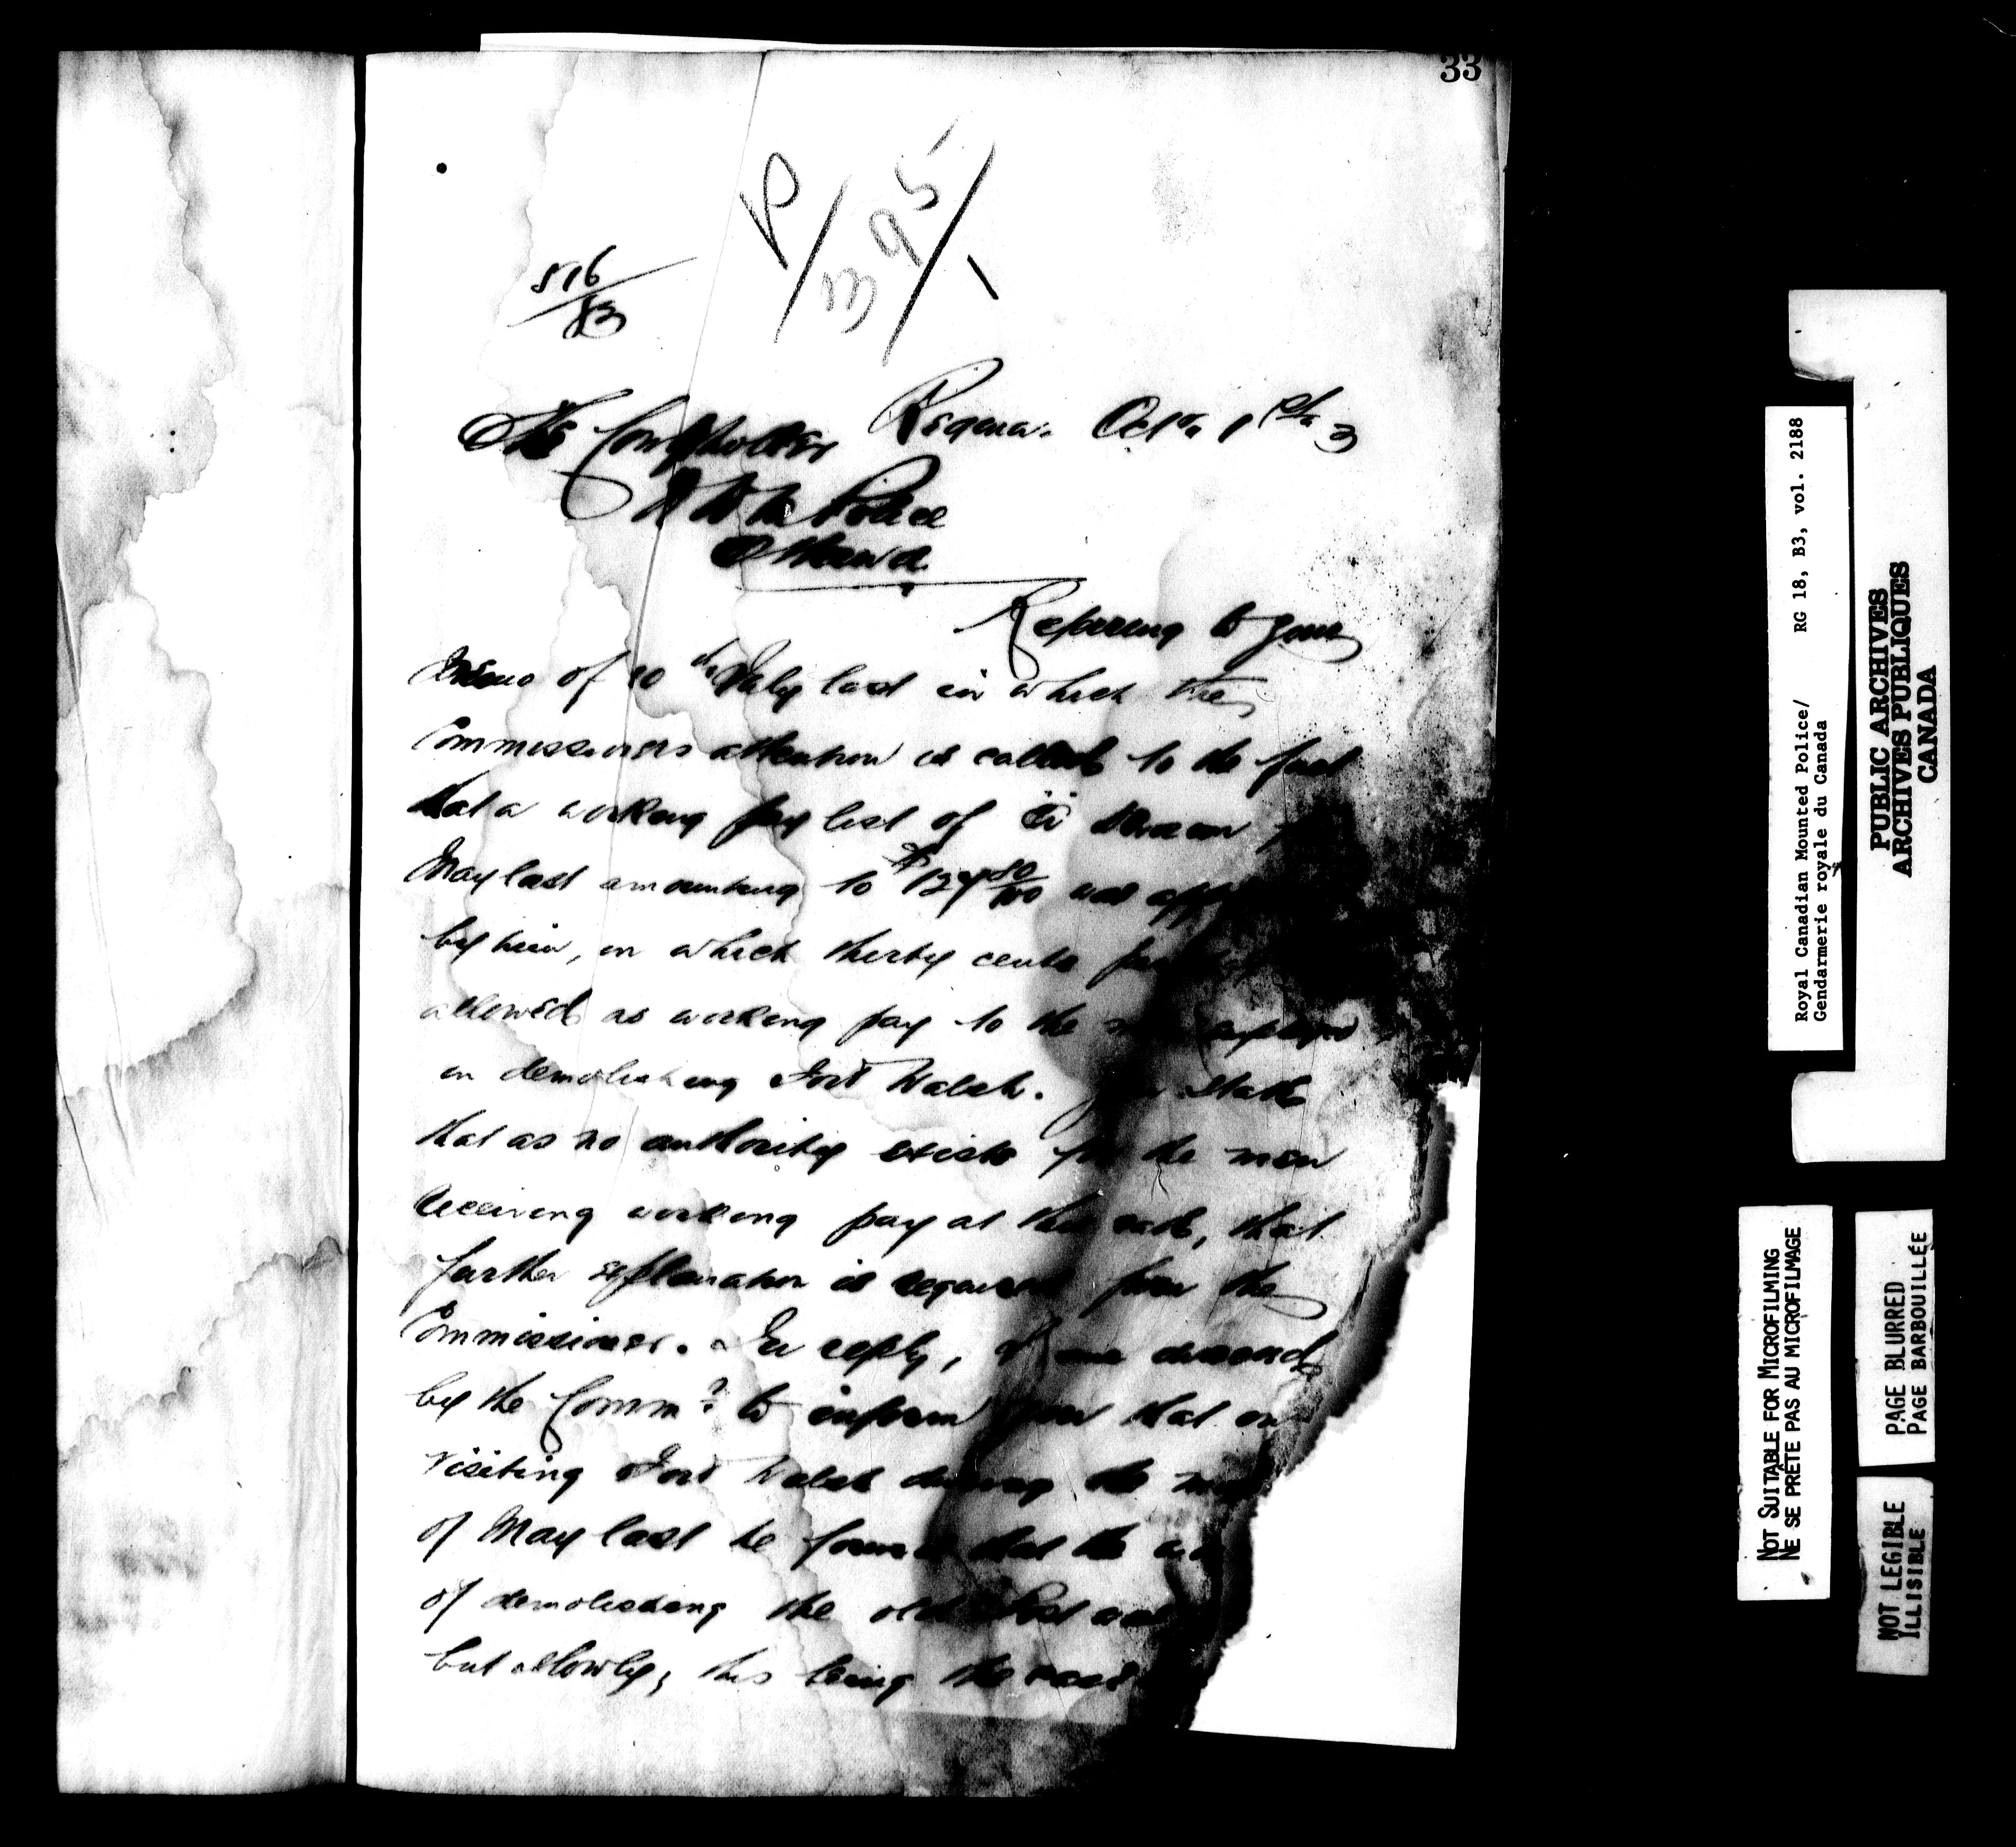 33
P/395/1
516/83
Regina. Octr. 1st 3
The Comptroller
N W M Police
Ottawa
Referring to your
Memo of 10th July last in which the
Commissioners attention is called to the fact
that a working pay list of Division
May last amounting to $ was
by him, in which thirty cents
allowed as working pay to the employed
in demolishing Fort Walsh. You state
that as no authority exists for the men
receiving working pay at that rate, that
further explanation is required from the
Commissioner. In reply, I am directed
by the Commr. to inform you that on
visiting Fort Walsh during the
of May last he found that the
of demolishing the old Post was
but slowly, this being the
Royal Canadian Mounted Police/ RG 18, B3, vol. 2188
Gendarmerie royale du Canada
PUBLIC ARCHIVES
ARCHIVES PUBLIQUES
CANADA
NOT SUITABLE FOR MICROFILMING
NE SE PRÊTE PAS AU MICROFILMAGE
PAGE BLURRED
PAGE BARBOUILLÉE
NOT LEGIBLE
ILLISIBLE